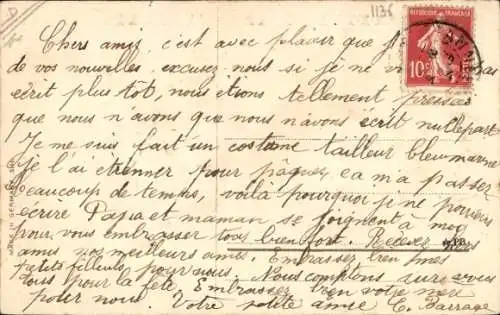 1136
REPUBLIQUE FRANÇAISE
10c
Chers amis, c'est avec plaisir que
de vos nouvelles, excusez nous si je ne
écrit plus tôt, nous étions tellement pressés
que nous n'avons que nous n'avons écrit nullepart
Je me suis fait un costume tailleur bleu marine
je l'ai étrenner pour pâques, ça m'a passer
beaucoup de temps, voilà pourquoi je ne pouvais
écrire Papa et maman se joignent à moi
pour vous embrasser tous bien fort. Recevez
amis nos meilleurs Embrassez bien
petits pour nous. Nous comptons sur vous
tous pour la fête. Embrassez bien votre
pour nous. Votre petite amie C. Barrage
MADE IN GERMANY